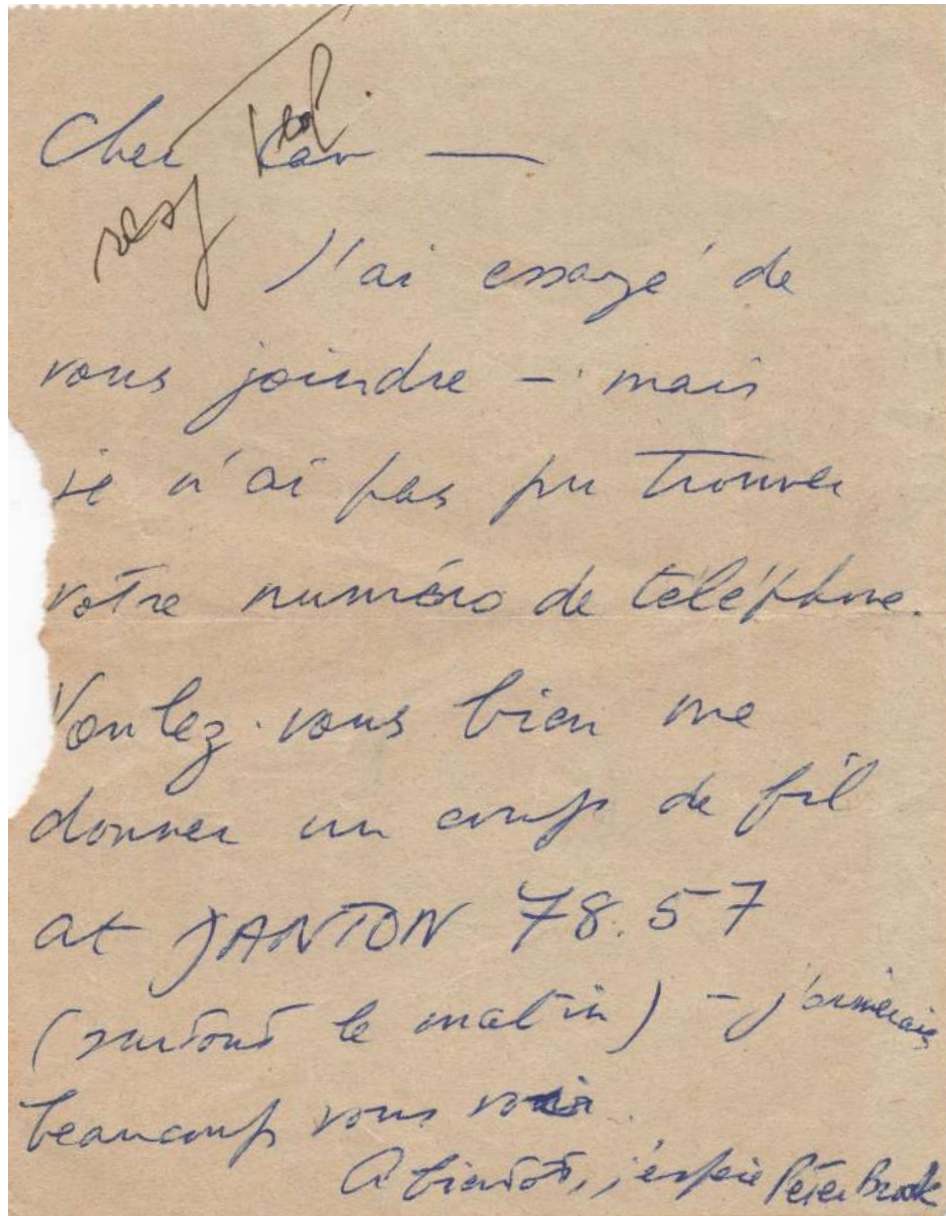 Cher Kar —
J'ai essayé de
vous joindre – mais
je n'ai pas pu trouver
votre numéro de téléphone.
Voulez-vous bien me
donner un coup de fil
at DANTON 78.57
(surtout le matin) – j'aimerais
beaucoup vous voir.
A bientôt, j'espère Peter Brook